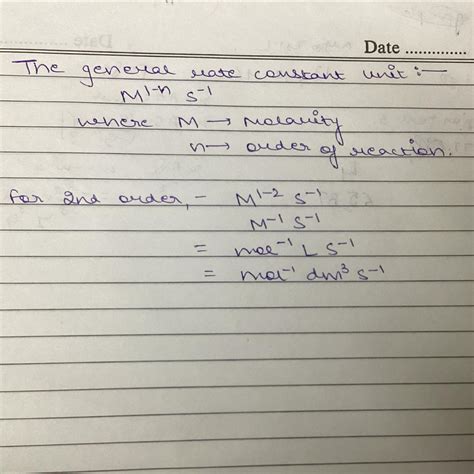 Date ..............
The general rate constant unit :—
M¹⁻ⁿ s⁻¹
where M → Molarity
n → order of reaction.
For 2nd order, - M¹⁻² s⁻¹
M⁻¹ s⁻¹
= mol⁻¹ L s⁻¹
= mol⁻¹ dm³ s⁻¹